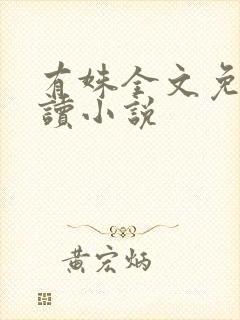 有妹全文免
讀小說
黃宏炳